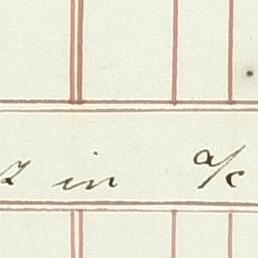 in a/c